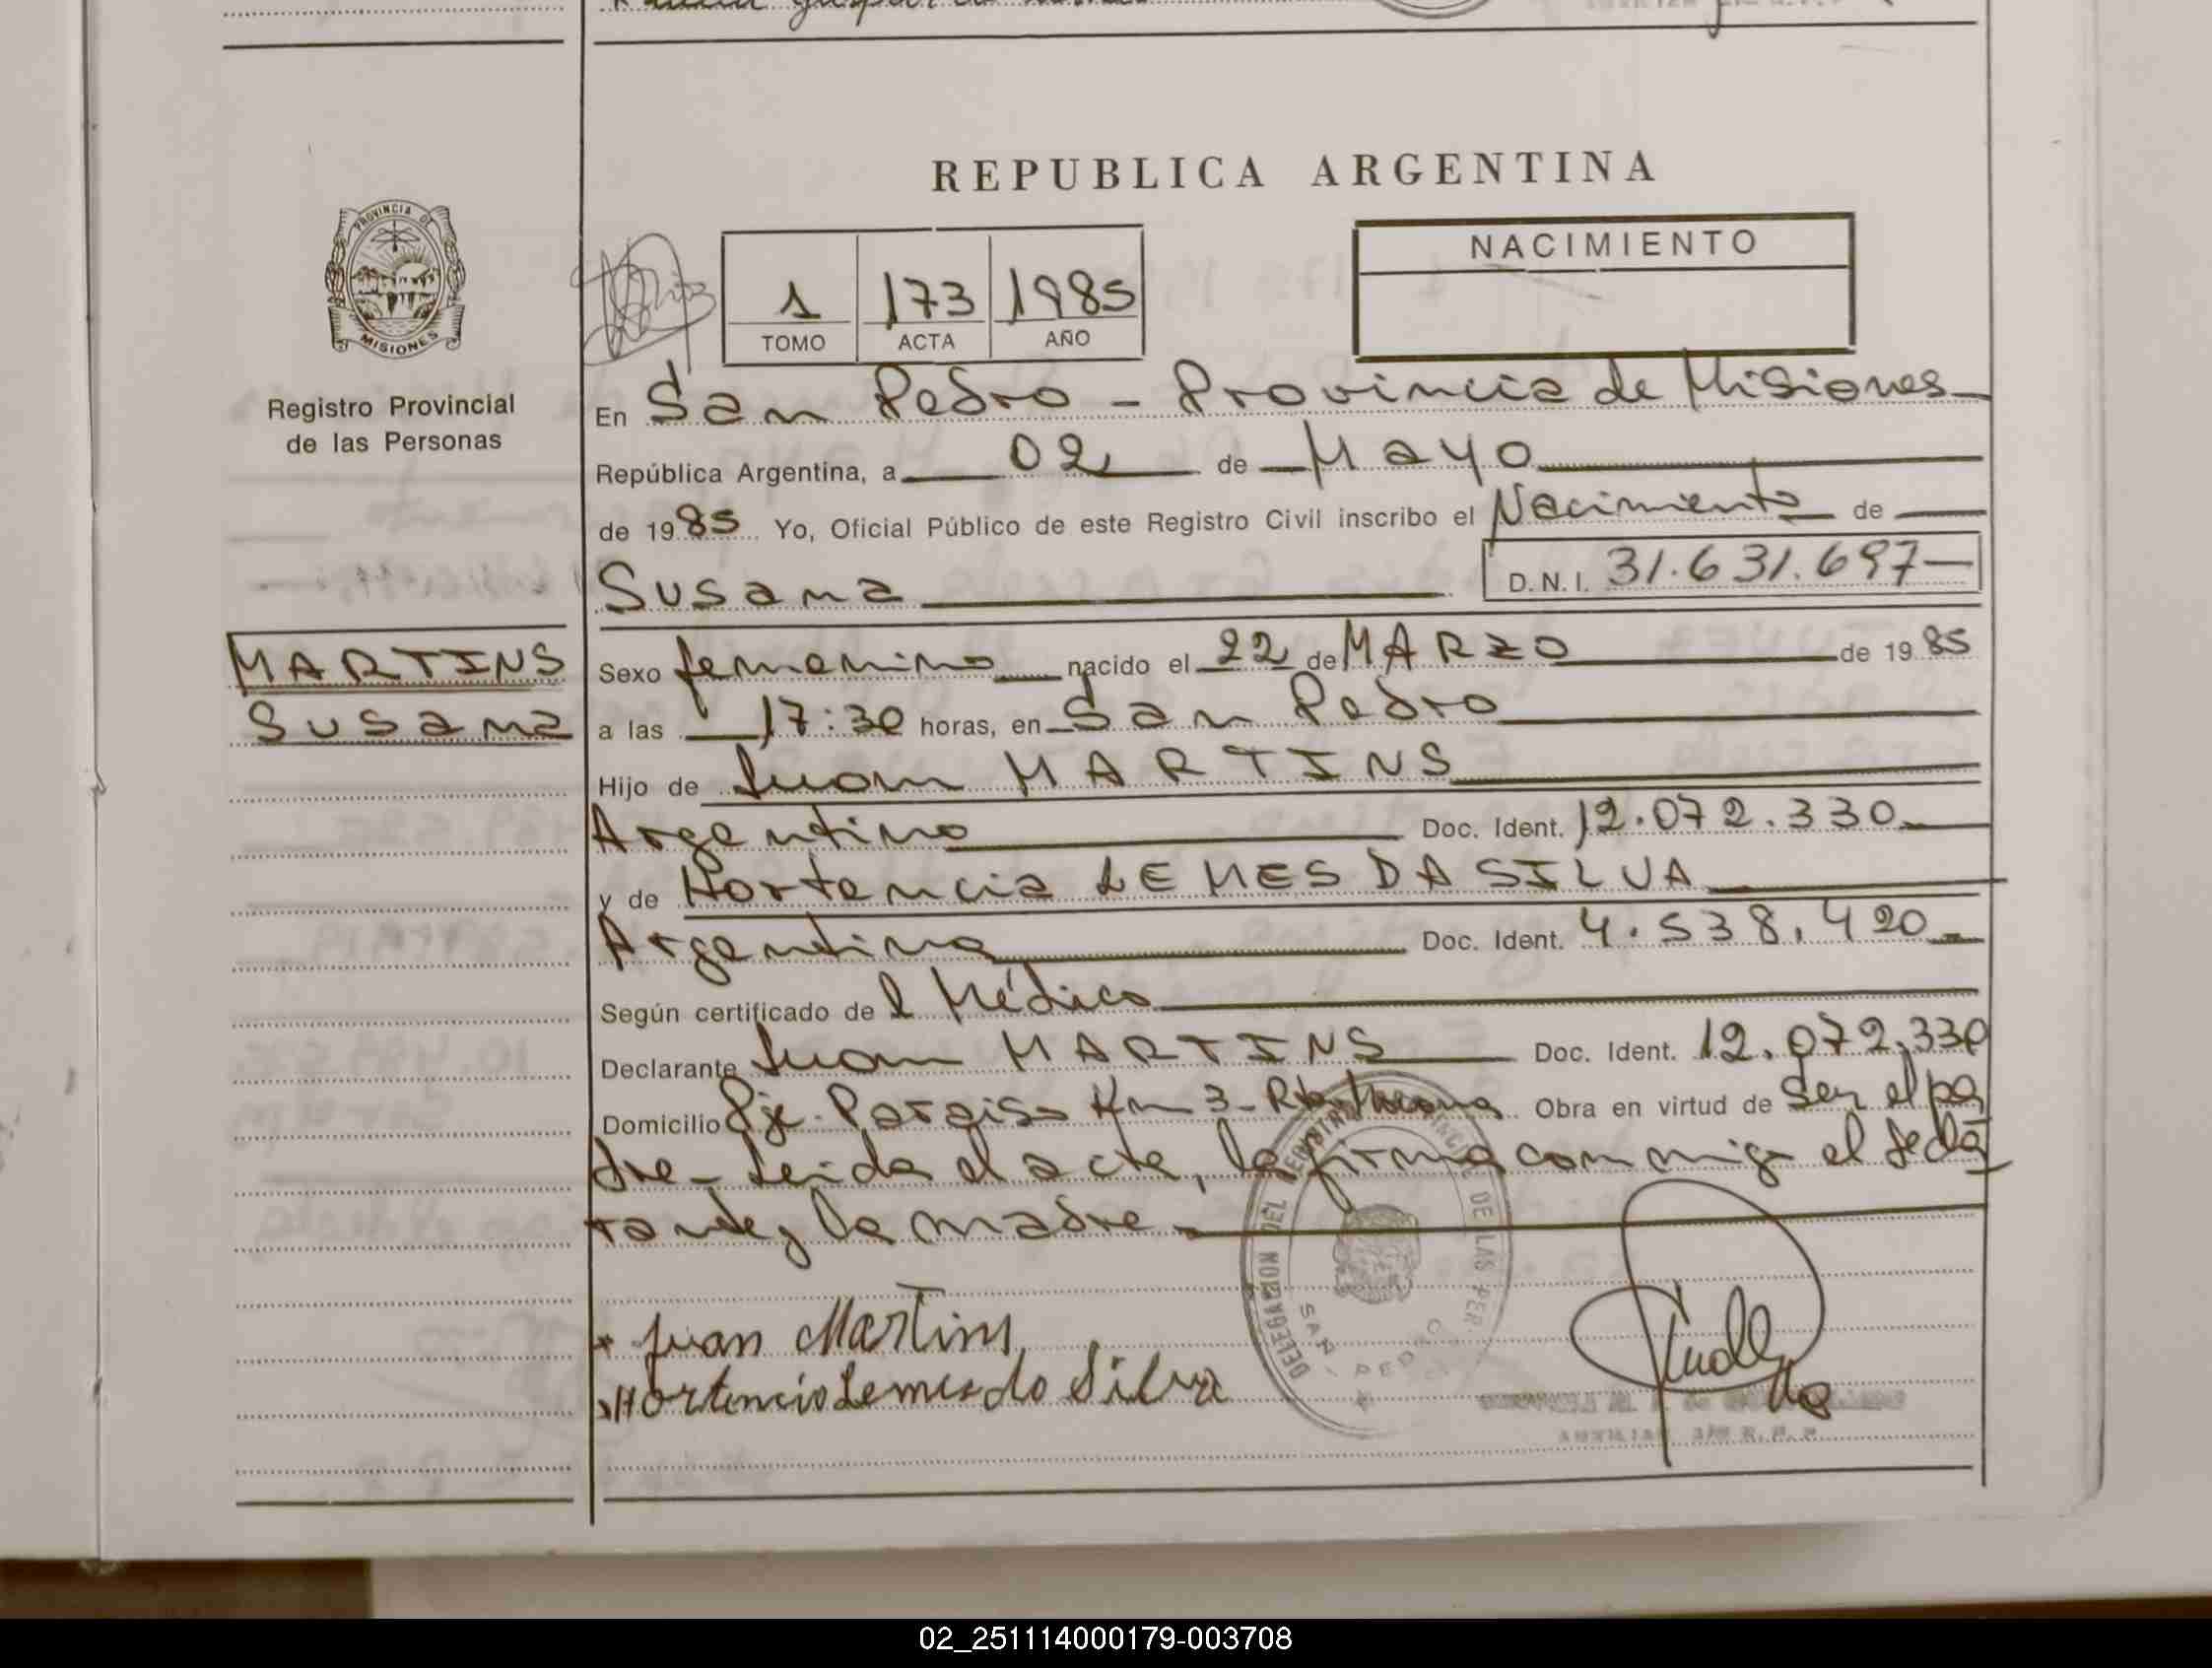 REPUBLICA ARGENTINA
PROVINCIA DE
MISIONES
Registro Provincial
de las Personas
1 173 1985
TOMO ACTA AÑO
NACIMIENTO
En San Pedro - Provincia de Misiones
República Argentina, a 02 de Mayo
de 1985 Yo, Oficial Público de este Registro Civil inscribo el Nacimiento de
Susana D.N.I. 31.631.697-
MARTINS
Susana
Sexo femenino nacido el 22 de MARZO de 1985
a las 17:30 horas, en San Pedro
Hijo de Juan MARTINS
Argentino Doc. Ident. 12.072.330
y de Hortencia LEMES DA SILVA
Argentina Doc. Ident. 4.538.420
Según certificado del Médico
Declarante Juan MARTINS Doc. Ident. 12.072.330
Domicilio Pje. Paraiso Km 3- Obra en virtud de Ser el pa
dre - Leida el acta, la firma con migo el decla
rante y la madre
DELEGACION DEL REGISTRO PROVINCIAL DE LAS PER.
SAN PEDRO
Juan Martins
Hortencia Lemes da Silva
02_251114000179-003708